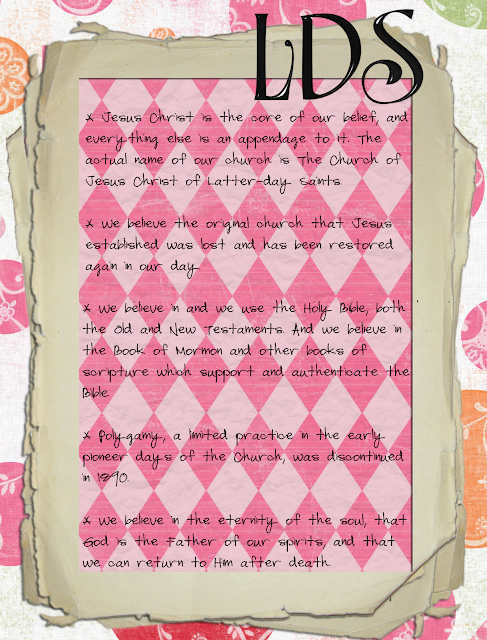 LDS
* Jesus Christ is the core of our belief, and
everything else is an appendage to it. The
actual name of our church is The Church of
Jesus Christ of Latter-day Saints.
* We believe the original church that Jesus
established was lost and has been restored
again in our day.
* We believe in and we use the Holy Bible, both
the Old and New Testaments. And we believe in
the Book of Mormon and other books of
scripture which support and authenticate the
Bible.
* Polygamy, a limited practice in the early
pioneer days of the Church, was discontinued
in 1890.
* We believe in the eternity of the soul, that
God is the Father of our spirits, and that
we can return to Him after death.